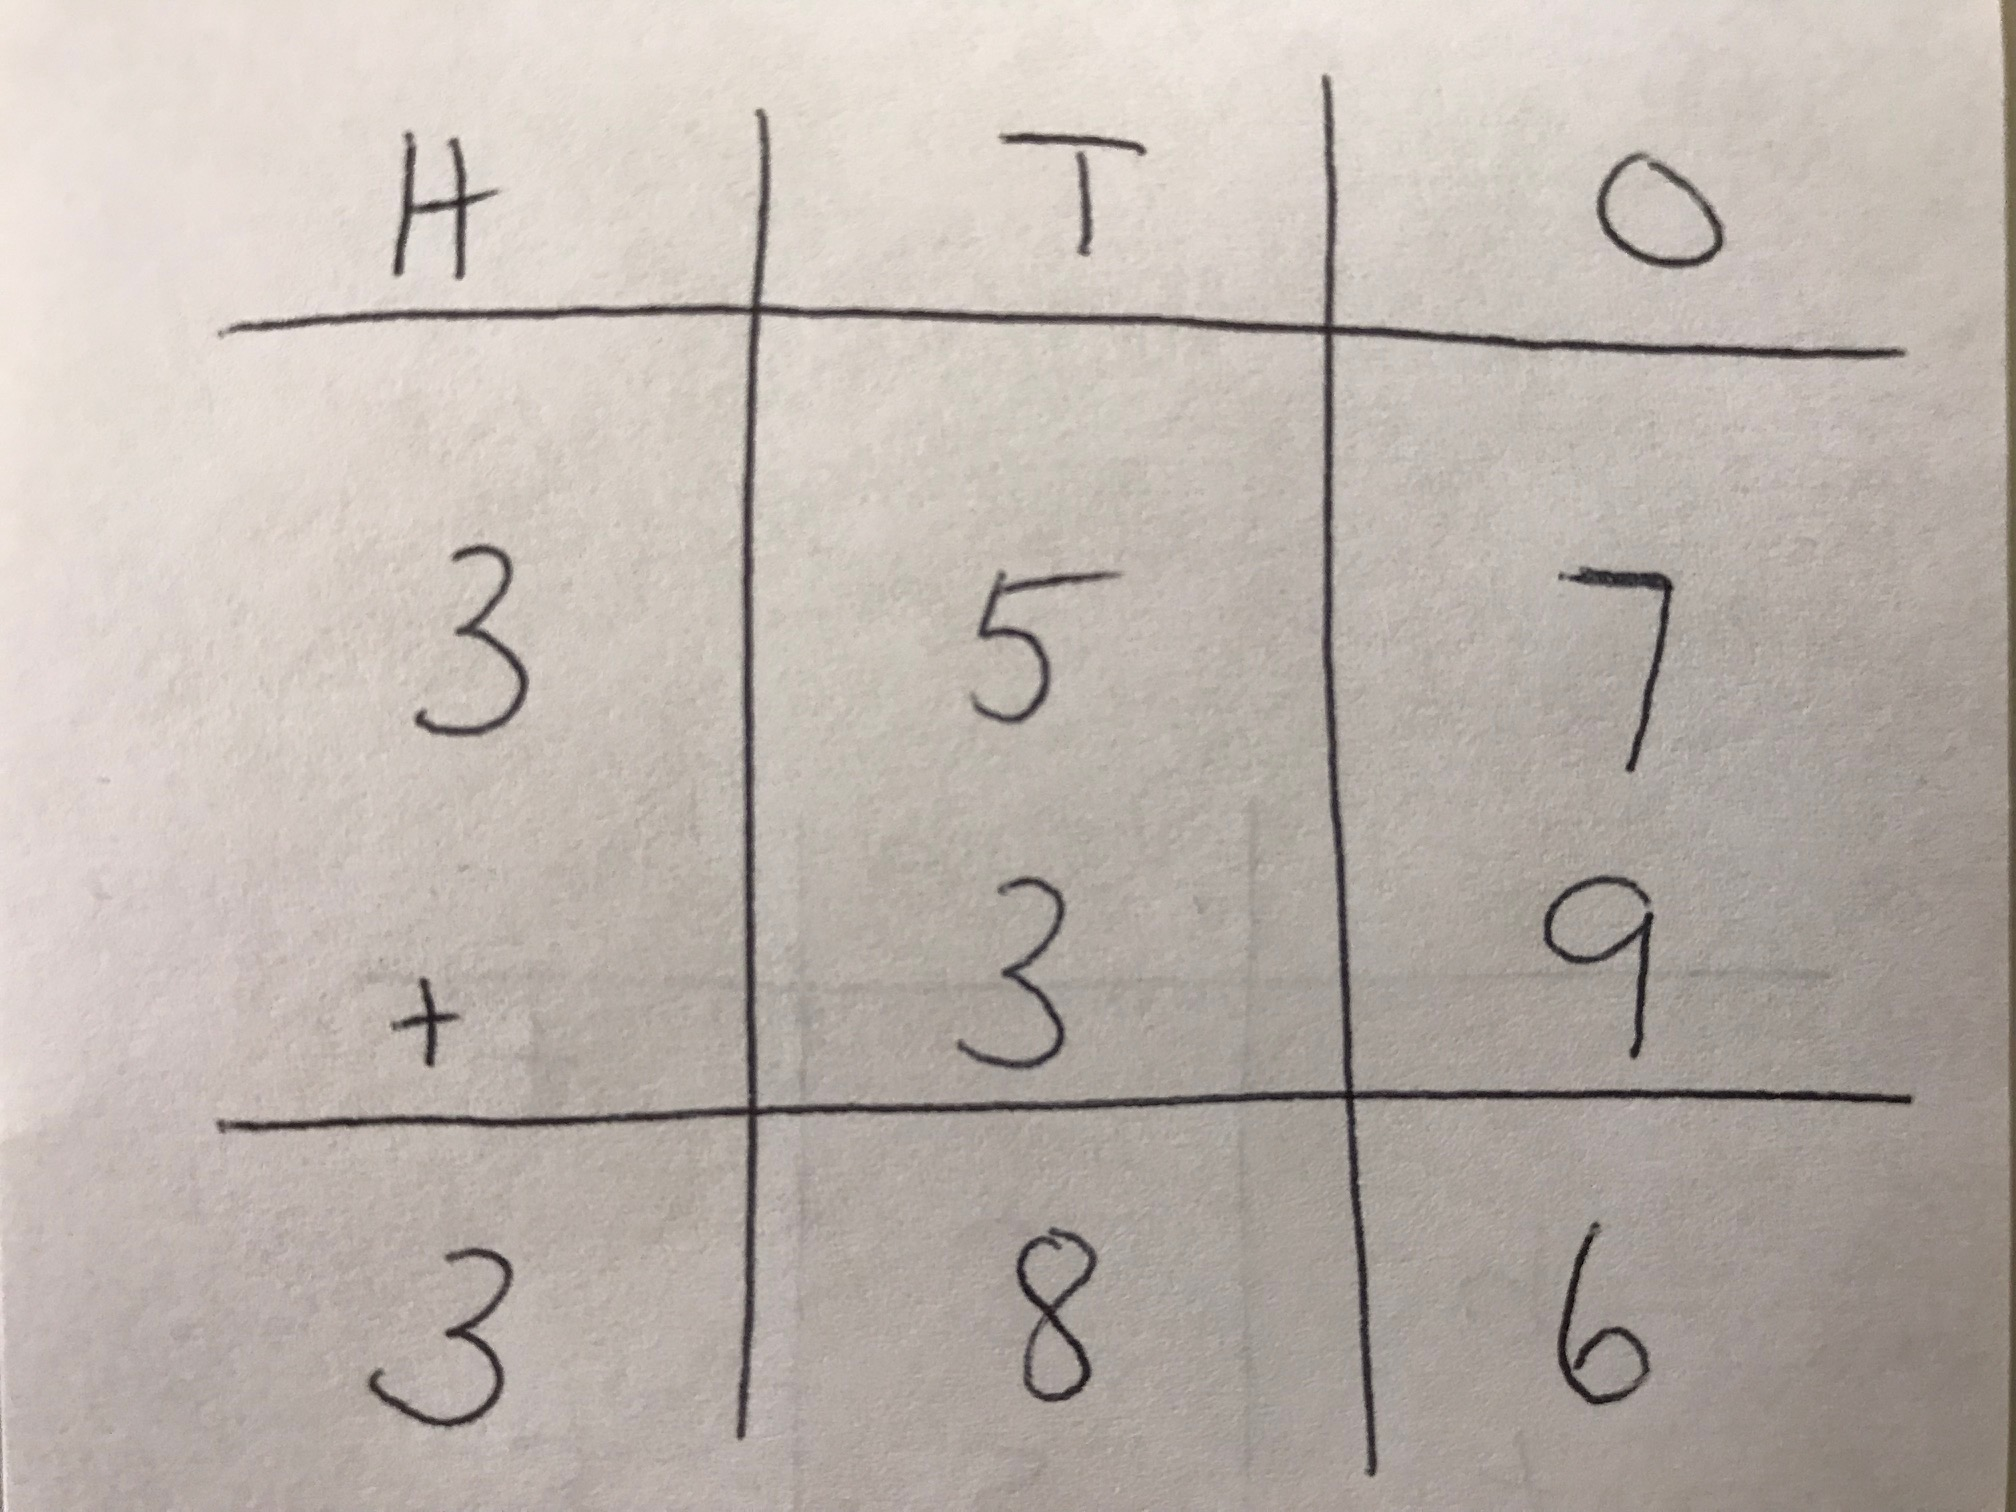 H T O
3 5 7
+ 3 9
3 8 6